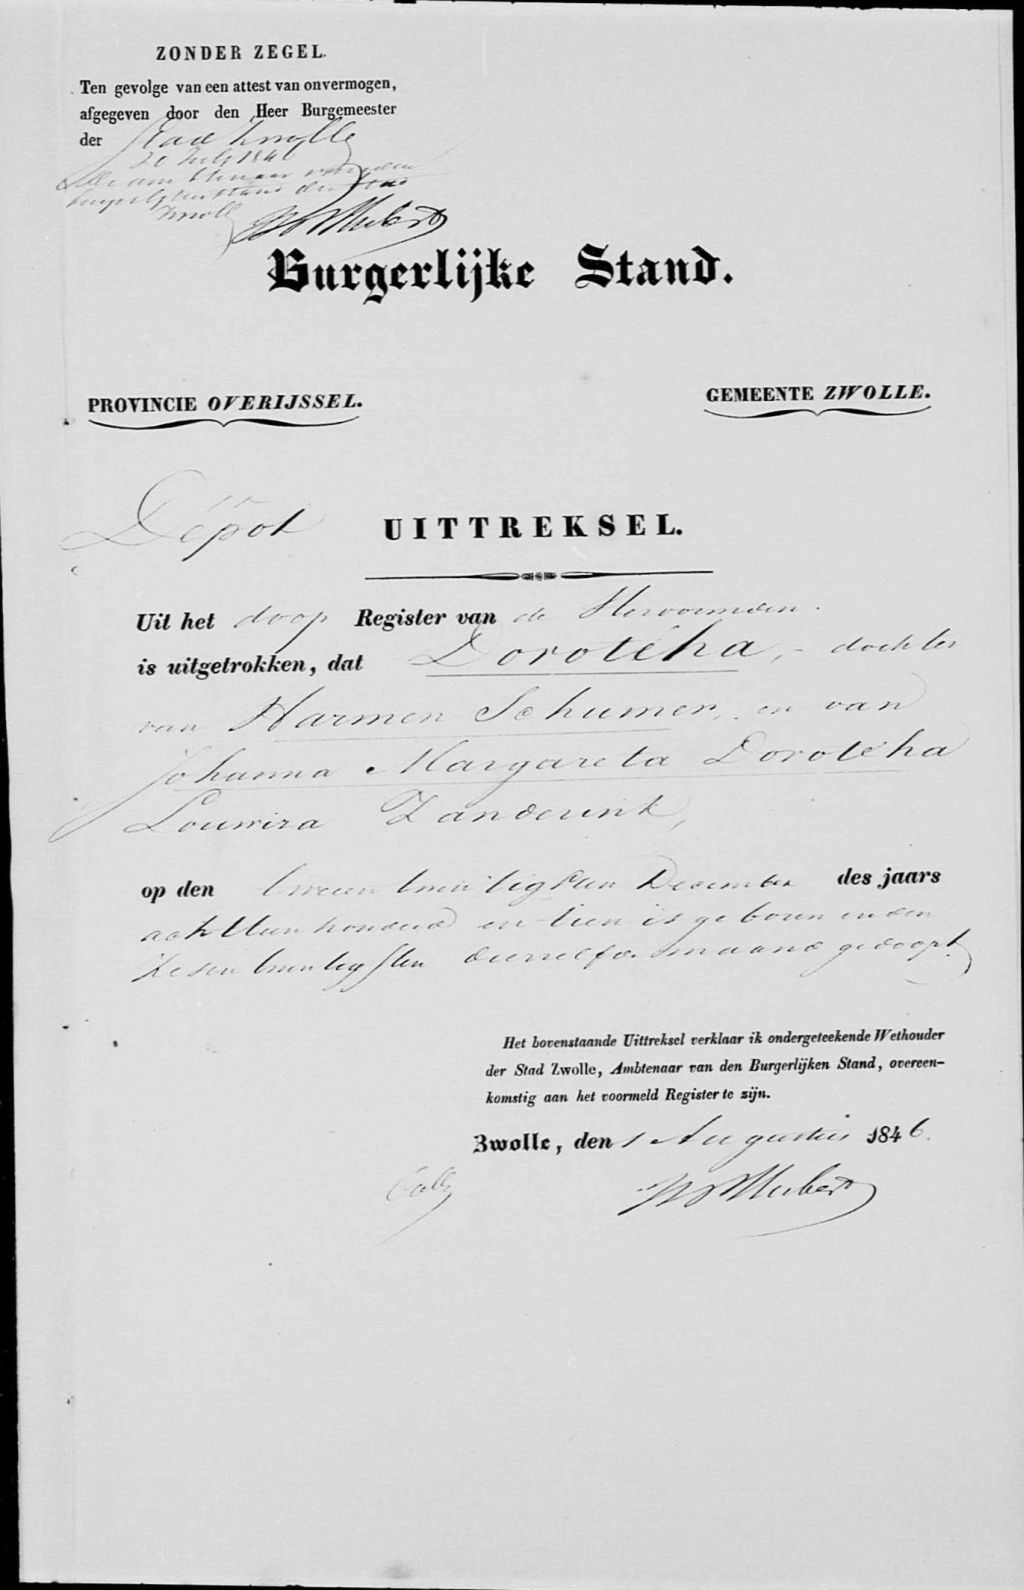 ZONDER ZEGEL.
Ten gevolge van een attest van onvermogen,
afgegeven door den Heer Burgemeester
der Stad Zwolle
20 July 1846
De ambtenaar van den
burgerlyken stand der stad
Zwolle
Burgerlijke Stand.
PROVINCIE OVERIJSSEL.
GEMEENTE ZWOLLE.
Dépot
UITTREKSEL.
Uit het doop Register van de Hervormden.
is uitgetrokken, dat Dorotéha, dochter
van Harmen Schumer, en van
Johanna Margareta Dorotéha
Louwiza Zanderink,
op den tweeentwintigsten December des jaars
achttienhonderd en tien is geboren en den
zesentwintigsten derzelfde maand gedoopt.
Het bovenstaande Uittreksel verklaar ik ondergeteekende Wethouder
der Stad Zwolle, Ambtenaar van den Burgerlijken Stand, overeen-
komstig aan het voormeld Register te zijn.
Zwolle, den 1 Augustus 1846.